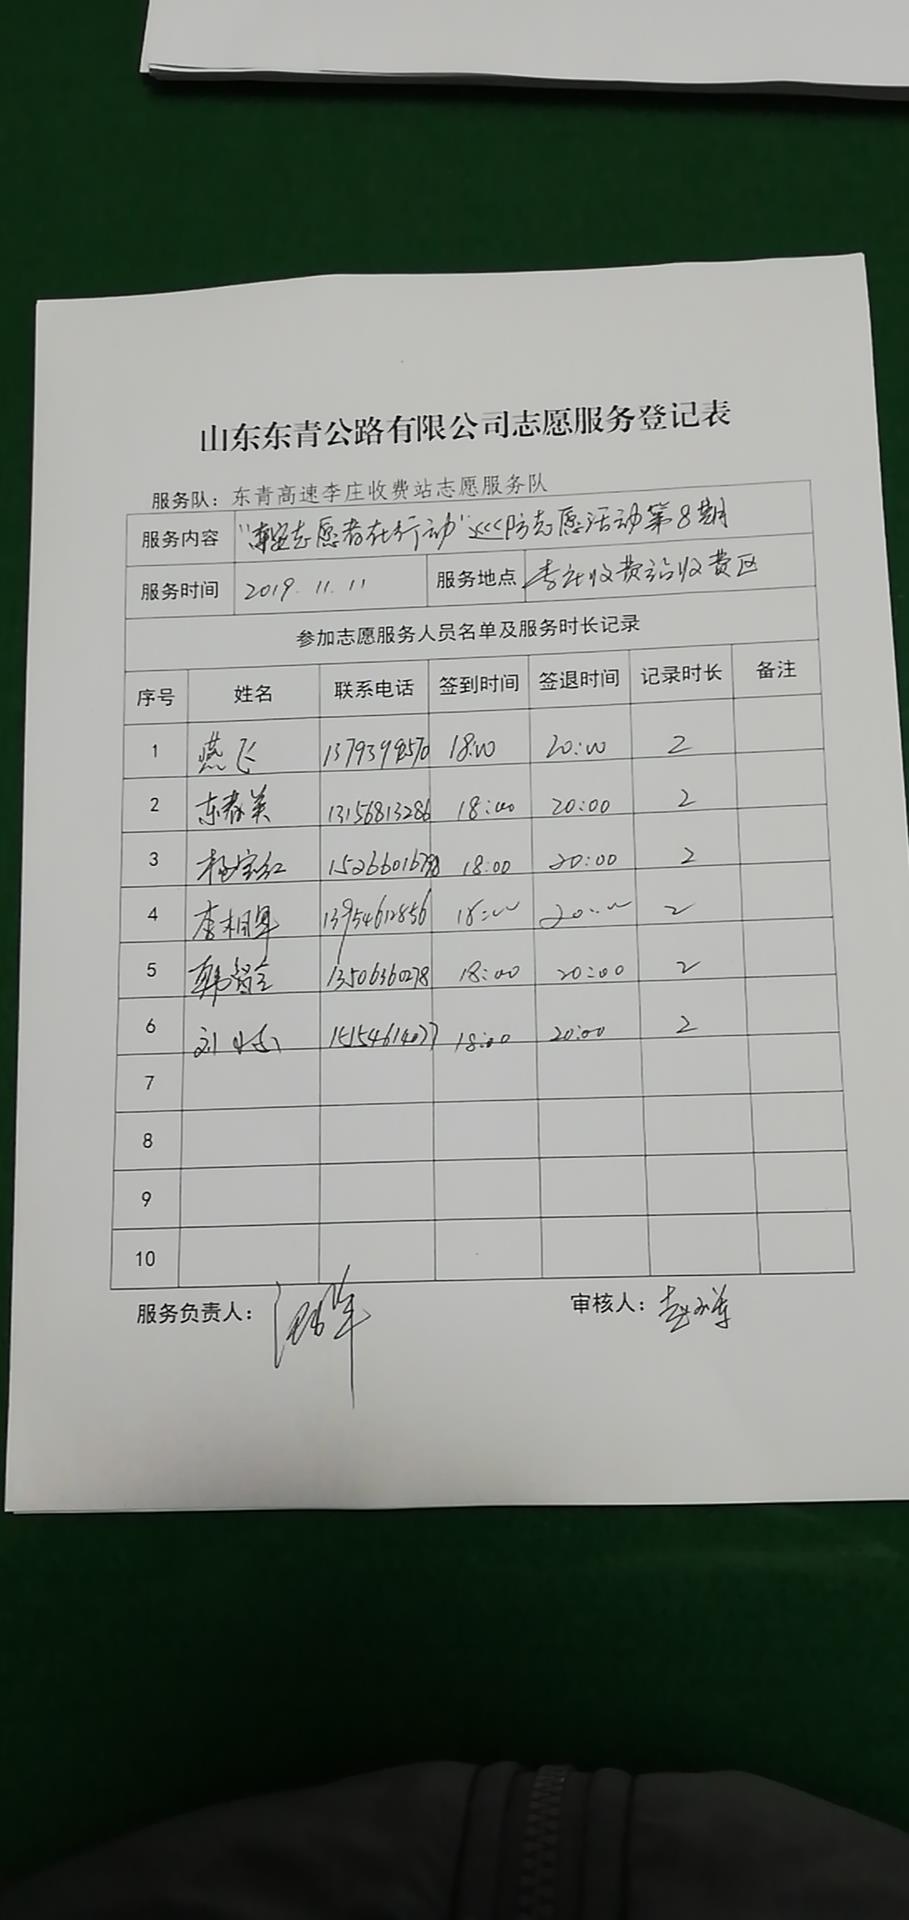 山东东青公路有限公司志愿服务登记表
服务队：东青高速李庄收费站志愿服务队
服务内容 志愿者在行动" 巡防志愿活动第8期
服务时间 2019.11.11 服务地点 李庄收费站收费区
参加志愿服务人员名单及服务时长记录
序号 姓名 联系电话 签到时间 签退时间 记录时长 备注
1 燕飞 18:00 20:00 2
2 13156813286 18:00 20:00 2
3 杨宝红 18:00 20:00 2
4 李相军 13954612856 18:00 20:00 2
5 韩智全 13506360278 18:00 20:00 2
6 15154614077 18:00 20:00 2
7
8
9
10
服务负责人： 审核人：